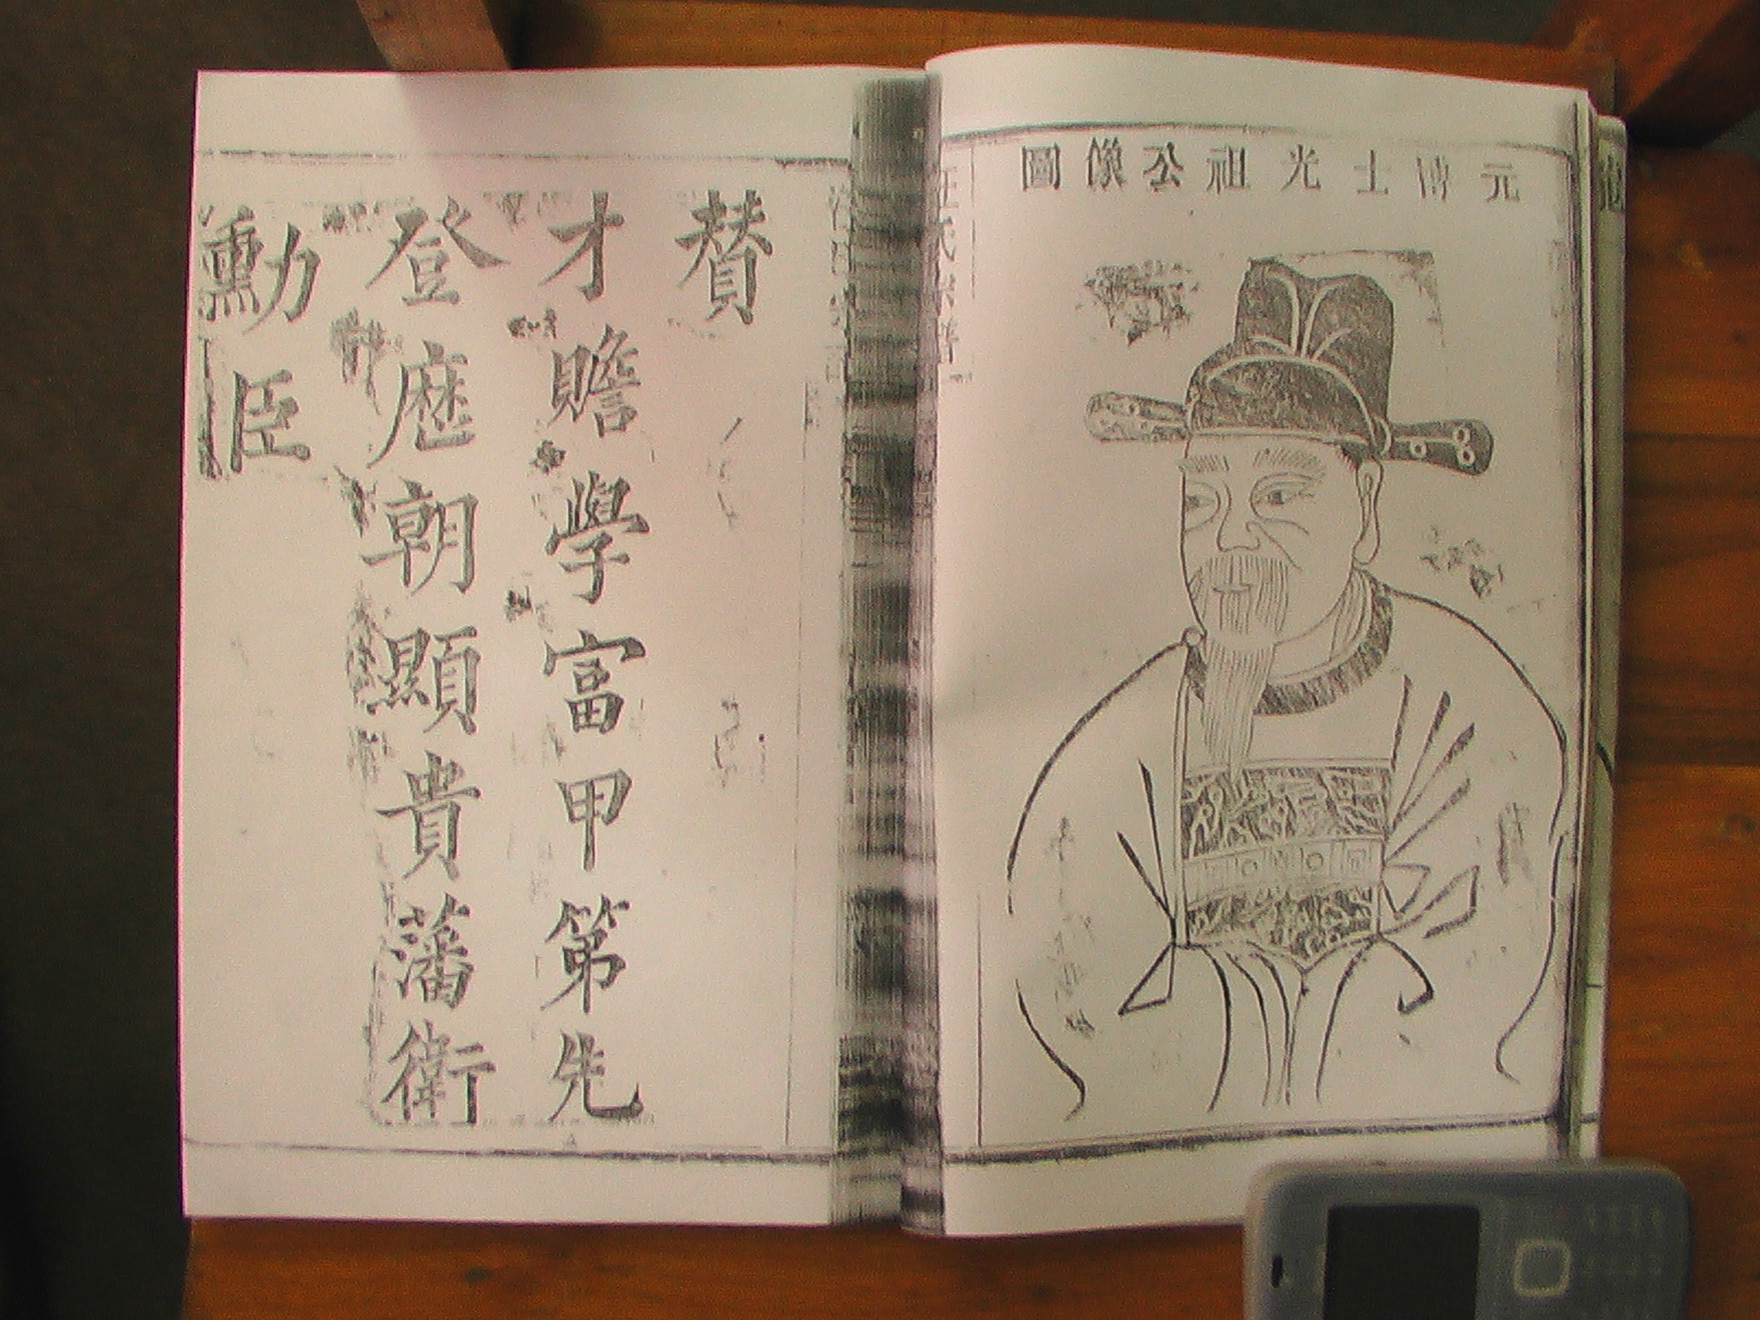 元博士光祖公像圖
汪氏宗譜
贊
才贍學富甲第先
登歷朝顯貴藩衛
勳臣